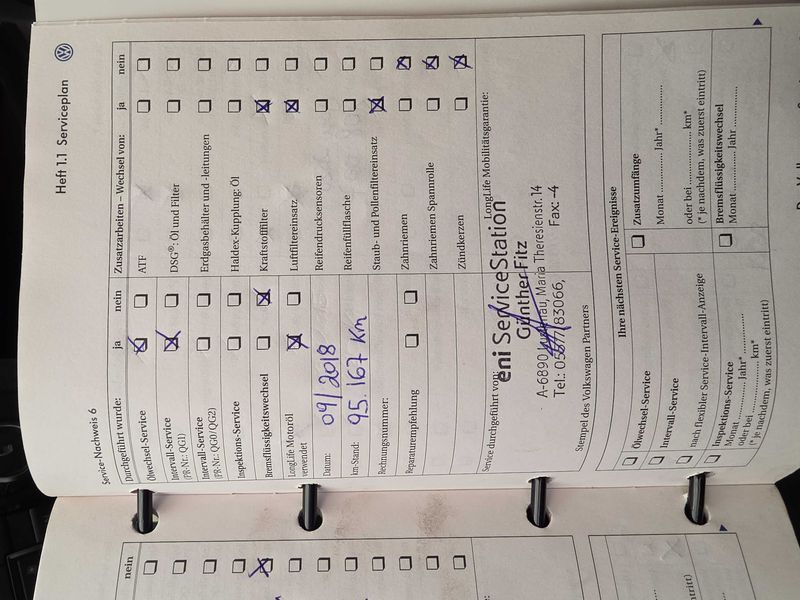 Heft 1.1 Serviceplan
Service-Nachweis 6
Durchgeführt wurde: ja nein
Ölwechsel-Service
Intervall-Service
(PR-Nr.: QG1)
Intervall-Service
(PR-Nr.: QG0/QG2)
Inspektions-Service
Bremsflüssigkeitswechsel
LongLife Motoröl
verwendet
Datum: 09/2018
km-Stand: 95.167 Km
Rechnungsnummer:
Reparaturempfehlung
Zusatzarbeiten – Wechsel von: ja nein
ATF
DSG®: Öl und Filter
Erdgasbehälter und -leitungen
Haldex-Kupplung: Öl
Kraftstofffilter
Luftfiltereinsatz
Reifendrucksensoren
Reifenfüllflasche
Staub- und Pollenfiltereinsatz
Zahnriemen
Zahnriemen Spannrolle
Zündkerzen
Service durchgeführt von:
LongLife Mobilitätsgarantie:
eni ServiceStation
Günther Fitz
A-6890 Maria Theresienstr. 14
Tel.: 05577/83066, Fax: -4
Stempel des Volkswagen Partners
Ihre nächsten Service-Ereignisse
Ölwechsel-Service
Intervall-Service
nach flexibler Service-Intervall-Anzeige
Inspektions-Service
Monat .............. Jahr* ..............
oder bei .............. km*
(* je nachdem, was zuerst eintritt)
Zusatzumfänge
Monat .............. Jahr* ..............
oder bei .............. km*
(* je nachdem, was zuerst eintritt)
Bremsflüssigkeitswechsel
Monat .............. Jahr ..............
nein